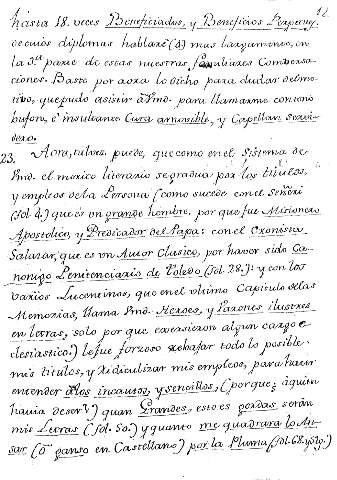 12
hasta 18. veces Beneficiados, y Beneficios
de cuios diplomas hablaré (d) mas largamente, en
la 3.ª parte de estas nuestras familiares Conversa-
ciones. Baste por aora lo dicho para dudar del mo-
tivo, que pudo asistir à Vmd. para llamarme con tono
bufon, è insultante Cura amovible, y Capellan
23. Aora, talvez puede, que como en el sistema de
Vmd. el merito literario se gradua por los titulos,
y empleos de la Persona (como sucede con el
(fol. 4.) que és un grande hombre, por que fue Misionero
Apostolico, y Predicador del Papa: con el Cronista
Salazar, que es un Autor Clasico, por haver sido Ca-
nonigo Penitenciario de Toledo (fol. 28.): y con los
varios Lucentinos, que en el ultimo Capitulo de las
Memorias, llama Vmd. Heroes, y Varones ilustres
en letras, solo por que exercieron algun cargo e-
clesiastico.) le fue forzoso rebajar todo lo posible
mis titulos, y ridiculizar mis empleos, para hacer
entender à los incautos, y sencillos, (porque, à quien
havia de ser?) quan Grandes, esto es gordas serán
mis Letras (fol. 50.) y quanto me quadrara lo An-
sar (ò ganso en Castellano) por la Pluma (fol. 68. y